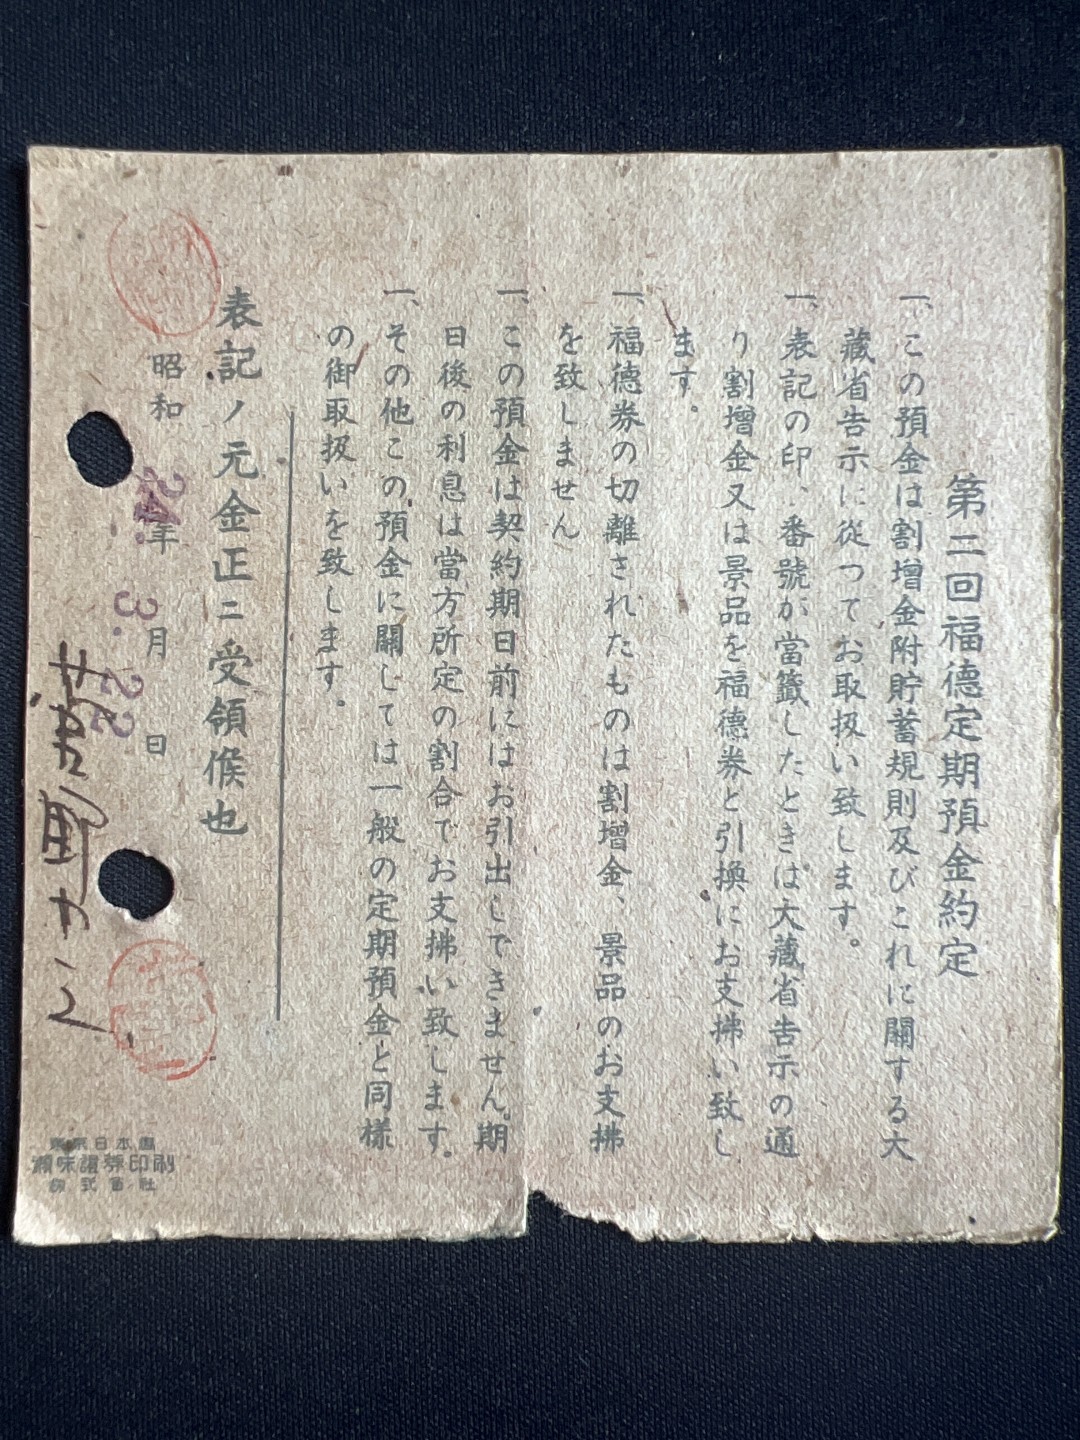 第二回福德定期預金約定
一、この預金は割增金附貯蓄規則及びこれに關する大
藏省告示に從つてお取扱い致します。
一、表記の印、番號が當籤したときは大藏省告示の通
り割增金又は景品を福德券と引換にお支拂い致し
ます。
一、福德券の切離されたものは割增金、景品のお支拂
を致しません
一、この預金は契約期日前にはお引出しできません。期
日後の利息は當方所定の割合でお支拂い致します。
一、その他この預金に關しては一般の定期預金と同樣
の御取扱いを致します。
表記ノ元金正ニ受領候也
昭和 24年 3月 22日
東京日本橋
證券印刷
株式會社